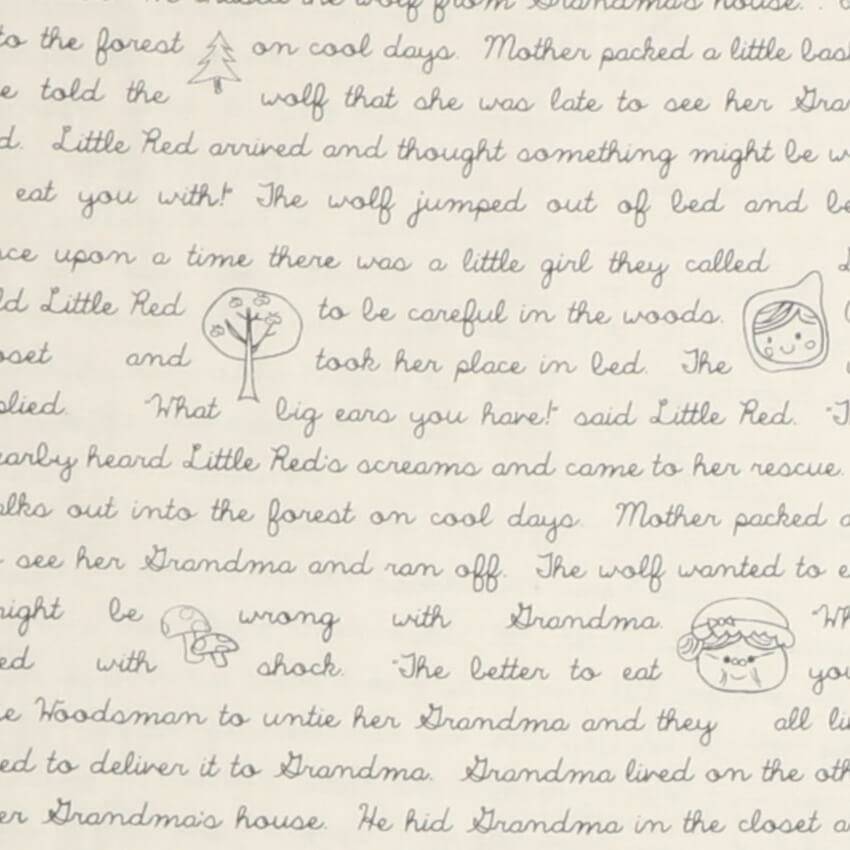 the wolf from Grandma's house.
to the forest on cool days. Mother packed a little
told the wolf that she was late to see her
Little Red arrived and thought something might be
eat you with!" The wolf jumped out of bed and
upon a time there was a little girl they called
Little Red to be careful in the woods.
and took her place in bed. The
"What big ears you have!" said Little Red.
heard Little Red's screams and came to her rescue.
out into the forest on cool days. Mother packed a
see her Grandma and ran off. The wolf wanted to
be wrong with Grandma.
with shock. "The better to eat you
Woodsman to untie her Grandma and they all
to deliver it to Grandma. Grandma lived on the
Grandma's house. He hid Grandma in the closet